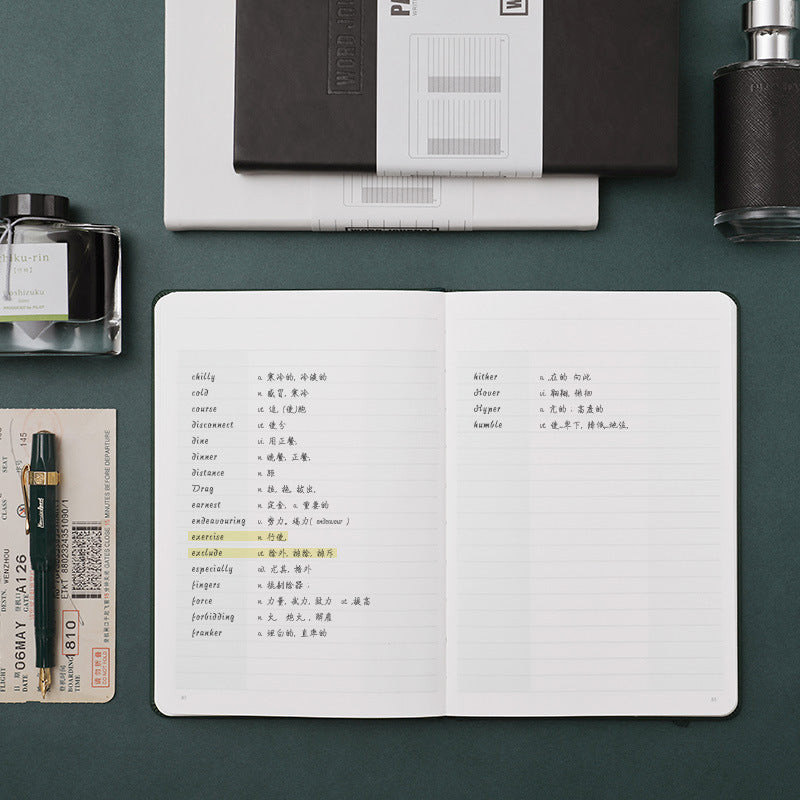 WORD JOURNAL
chiku-rin
PRODUCED BY PILOT
chilly a. 寒冷的, 冷淡的
cold n. 感冒, 寒冷
course vt. 追, (使)跑
disconnect vt. 使分
dine vi. 用正餐
dinner n. 晚餐, 正餐
distance n. 距
Drag n. 拉, 拖, 拔出
earnest n. 定金, a. 重要的
endeavouring v. 努力。竭力( endeavour )
exercise n. 行使
exclude vt. 除外, 排除, 排斥
especially ad. 尤其, 格外
fingers n.
force n. 力量, 武力, 效力 vt. 提高
forbidding
franker a. 坦白的, 直率的
81
hither a. 在的 向此
Hover vi. 翱翔, 徘徊
Hyper a. 亢的; 高度的
humble vt. 使 卑下, 降低 地位
SEAT
CLASS
145
DESTN. WENZHOU
GATE A126
FLIGHT
DATE 06MAY
登机时间
BOARDING TIME
1810
ETKT 8802324351090/1
GATES CLOSE 15 MINUTES BEFORE DEPARTURE
请勿折叠
DO NOT FOLD